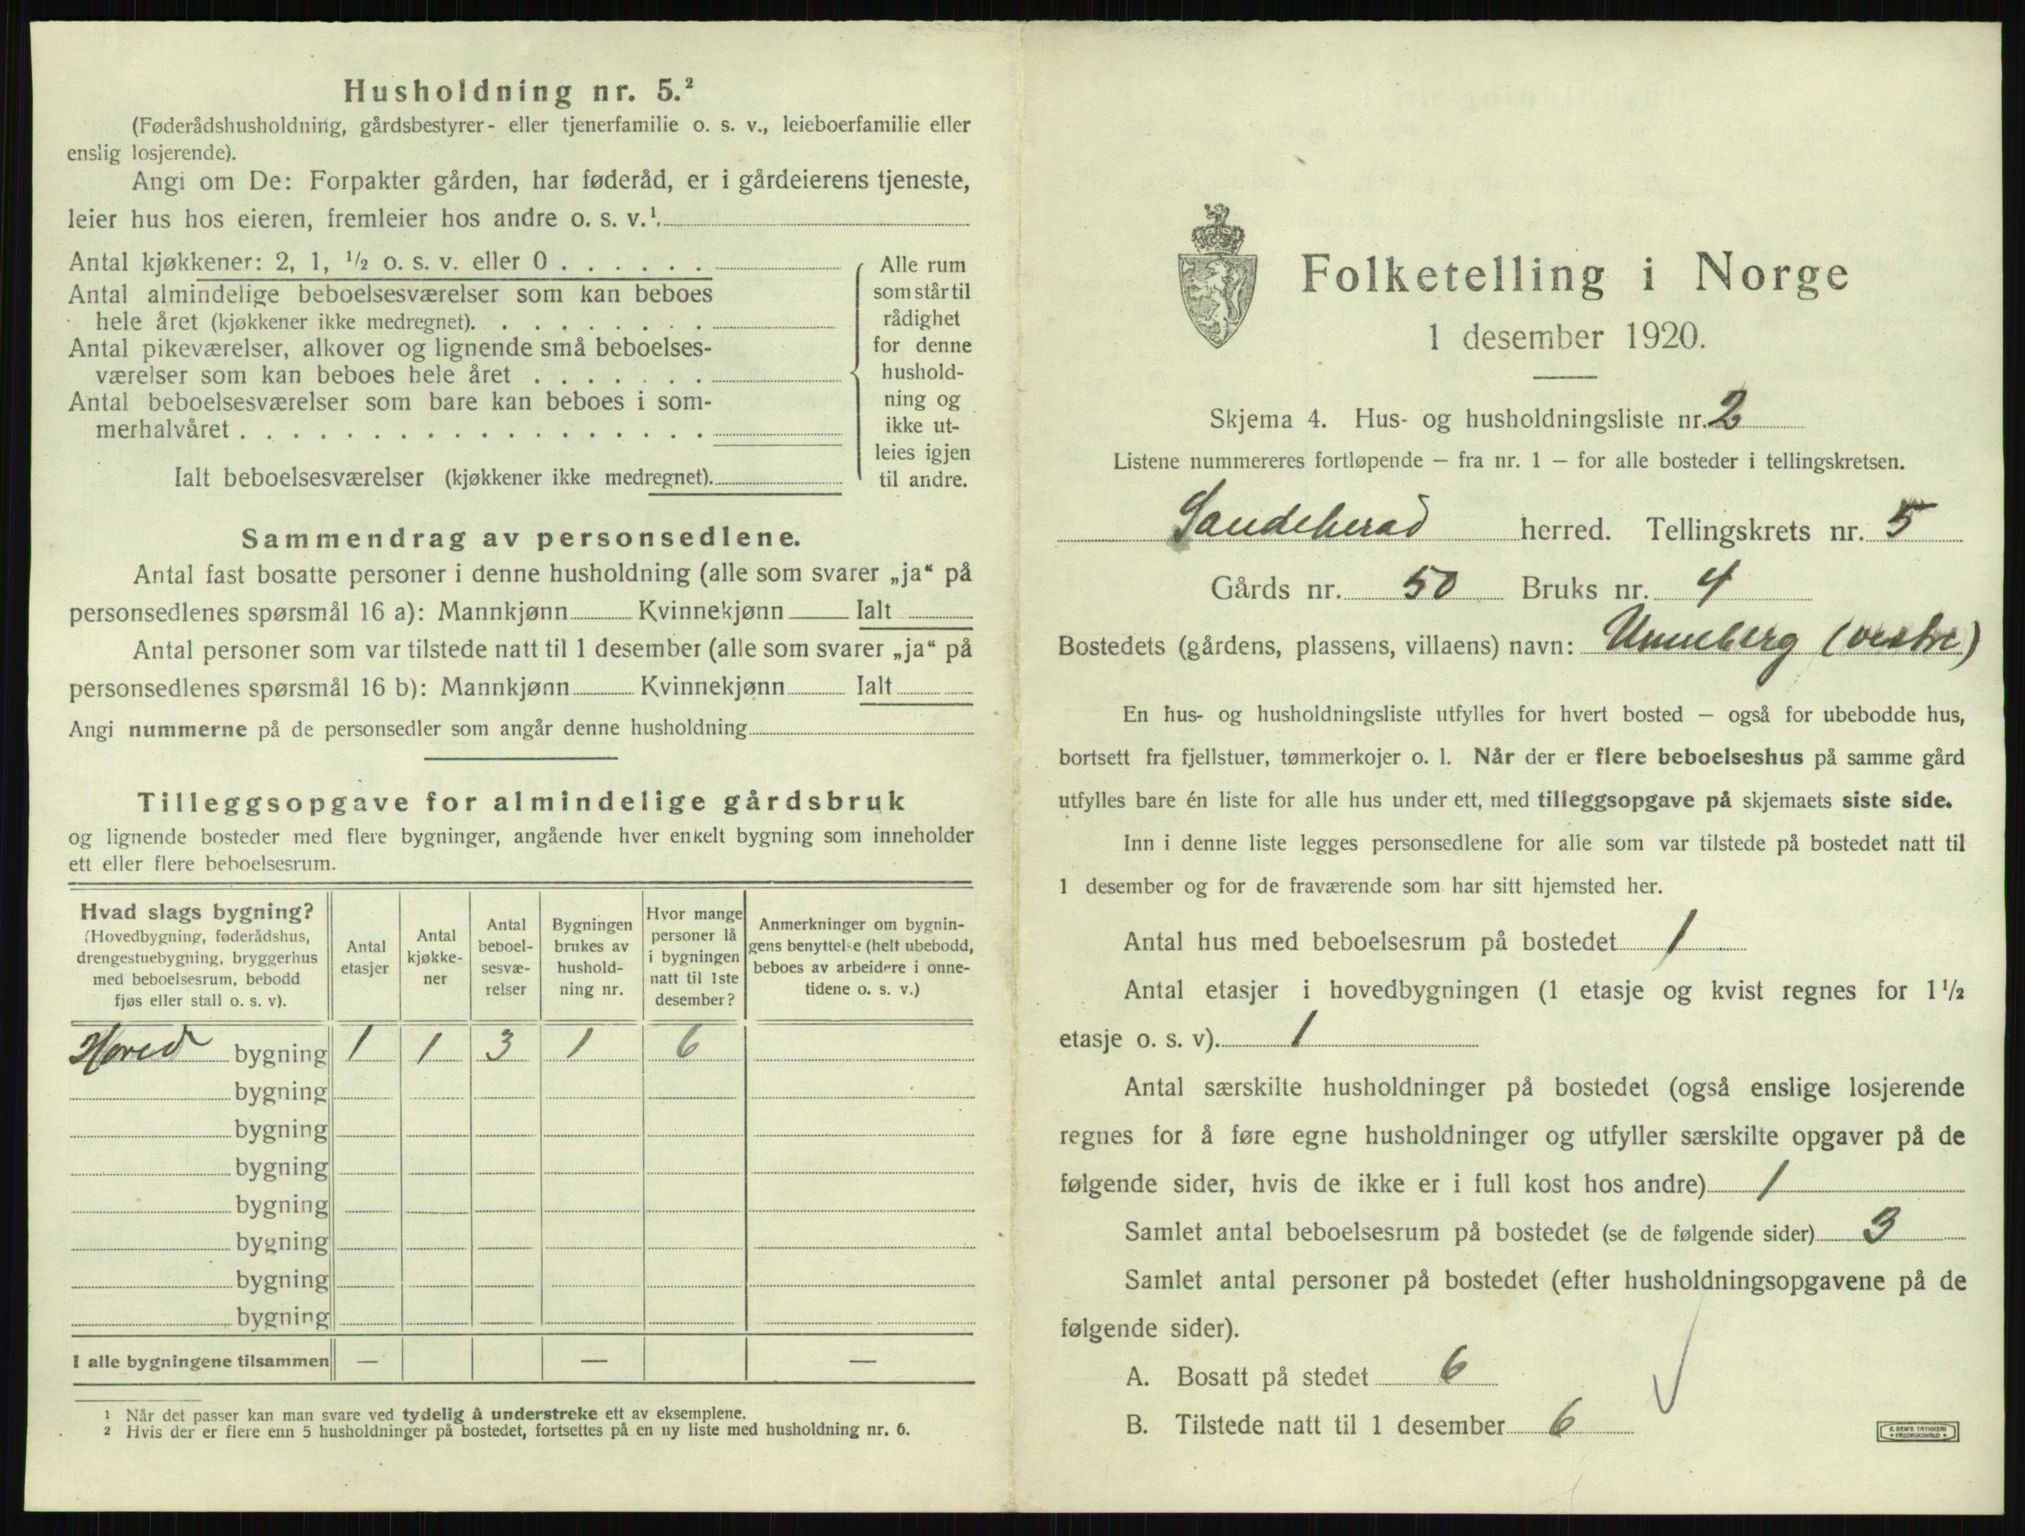 Husholdning nr. 5.²
(Føderådshusholdning, gårdsbestyrer- eller tjenerfamilie o. s. v., leieboerfamilie eller
enslig losjerende).
Angi om De: Forpakter gården, har føderåd, er i gårdeierens tjeneste,
leier hus hos eieren, fremleier hos andre o. s. v.¹
Antal kjøkkener: 2, 1, ½ o. s. v. eller 0 . . . . . .
Antal almindelige beboelsesværelser som kan beboes
hele året (kjøkkener ikke medregnet). . . . . . . . .
Antal pikeværelser, alkover og lignende små beboelses-
værelser som kan beboes hele året . . . . . . .
Antal beboelsesværelser som bare kan beboes i som-
merhalvåret . . . . . . . . . . . . . . . . . .
Ialt beboelsesværelser (kjøkkener ikke medregnet).
Alle rum
som står til
rådighet
for denne
hushold-
ning og
ikke ut-
leies igjen
til andre.
Sammendrag av personsedlene.
Antal fast bosatte personer i denne husholdning (alle som svarer „ja“ på
personsedlenes spørsmål 16 a): Mannkjønn Kvinnekjønn Ialt
Antal personer som var tilstede natt til 1 desember (alle som svarer „ja“ på
personsedlenes spørsmål 16 b): Mannkjønn Kvinnekjønn Ialt
Angi nummerne på de personsedler som angår denne husholdning
Tilleggsopgave for almindelige gårdsbruk
og lignende bosteder med flere bygninger, angående hver enkelt bygning som inneholder
ett eller flere beboelsesrum.
Hvad slags bygning?
(Hovedbygning, føderådshus,
drengestuebygning, bryggerhus
med beboelsesrum, bebodd
fjøs eller stall o. s. v).
Antal
etasjer
Antal
kjøkke-
ner
Antal
beboel-
sesvæ-
relser
Bygningen
brukes av
hushold-
ning nr.
Hvor mange
personer lå
i bygningen
natt til 1ste
desember?
Anmerkninger om bygnin-
gens benyttelse (helt ubebodd,
beboes av arbeidere i onne-
tidene o. s. v.)
Hoved bygning 1 1 3 1 6
bygning
bygning
bygning
bygning
bygning
bygning
bygning
I alle bygningene tilsammen — — —
¹ Når det passer kan man svare ved tydelig å understreke ett av eksemplene.
² Hvis der er flere enn 5 husholdninger på bostedet, fortsettes på en ny liste med husholdning nr. 6.
Folketelling i Norge
1 desember 1920.
Skjema 4. Hus- og husholdningsliste nr. 2
Listene nummereres fortløpende — fra nr. 1 — for alle bosteder i tellingskretsen.
Sandeherad herred. Tellingskrets nr. 5
Gårds nr. 50 Bruks nr. 4
Bostedets (gårdens, plassens, villaens) navn: Unneberg (vestre)
En hus- og husholdningsliste utfylles for hvert bosted — også for ubebodde hus,
bortsett fra fjellstuer, tømmerkojer o. l. Når der er flere beboelseshus på samme gård
utfylles bare én liste for alle hus under ett, med tilleggsopgave på skjemaets siste side.
Inn i denne liste legges personsedlene for alle som var tilstede på bostedet natt til
1 desember og for de fraværende som har sitt hjemsted her.
Antal hus med beboelsesrum på bostedet 1
Antal etasjer i hovedbygningen (1 etasje og kvist regnes for 1½
etasje o. s. v). 1
Antal særskilte husholdninger på bostedet (også enslige losjerende
regnes for å føre egne husholdninger og utfyller særskilte opgaver på de
følgende sider, hvis de ikke er i full kost hos andre) 1
Samlet antal beboelsesrum på bostedet (se de følgende sider) 3
Samlet antal personer på bostedet (efter husholdningsopgavene på de
følgende sider).
A. Bosatt på stedet 6
B. Tilstede natt til 1 desember 6
E. SEM'S TRYKKERI
FREDRIKSHALD